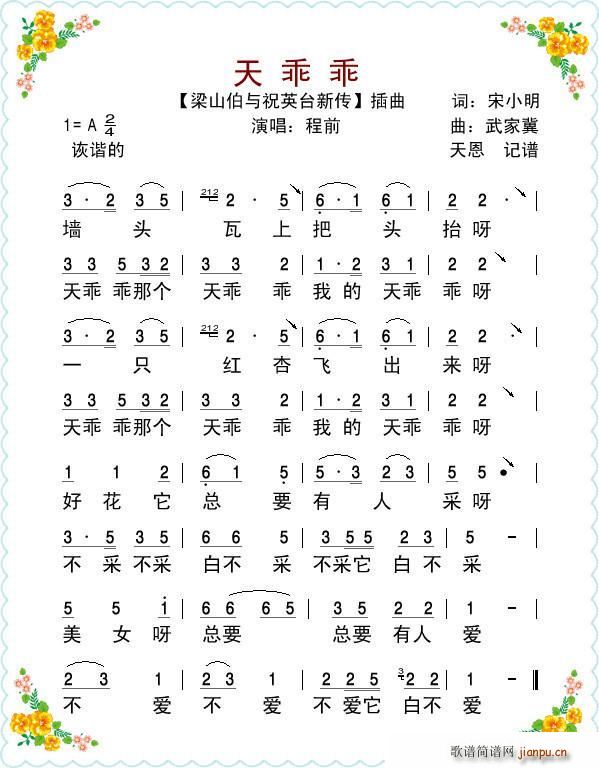 天乖乖
【梁山伯与祝英台新传】插曲 词：宋小明
1=A 2/4 演唱：程前 曲：武家冀
诙谐的 天恩 记谱
3·2 35 | 212 2·5· | 6·1 61 | 2 2· |
墙头瓦上把头抬呀
33 532 | 33 2 | 1·2 31 | 2 2 |
天乖乖那个天乖乖我的天乖乖呀
3·2 35 | 212 2·5· | 6·1 61 | 2 2· |
一只红杏飞出来呀
33 532 | 33 2 | 1·2 31 | 2 2 |
天乖乖那个天乖乖我的天乖乖呀
1 12 | 61 5 | 5·3 23 | 5 5 |
好花它总要有人采呀
3·5 35 | 66 5 | 355 25 | 5 - |
不采不采白不采不采它白不采
5 5 1 | 66 65 | 35 22 | 6 |
美女呀总要总要有人爱
23 1 | 21 2 | 225 3 22 | 5 - |
不爱不爱不爱它白不爱
歌谱简谱网
jianpu.cn